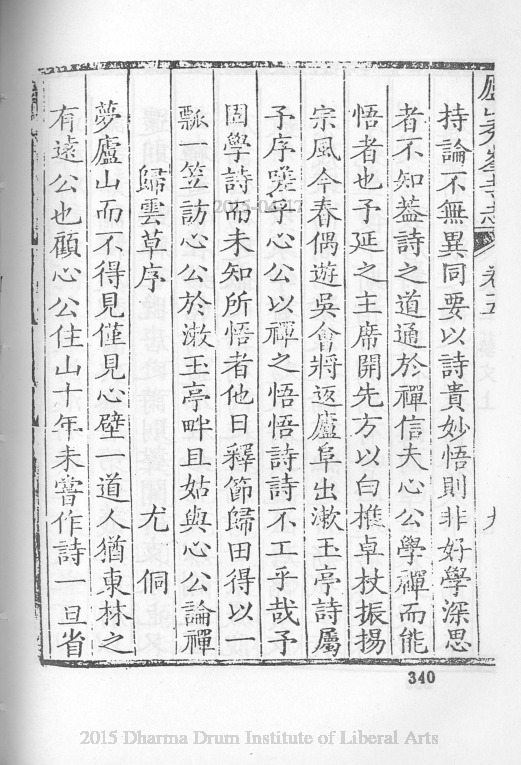 持論不無異同要以詩貴妙悟則非好學深思
者不知葢詩之道通於禪信夫心公學禪而能
悟者也予延之主席開先方以白椎卓杖振揚
宗風今春偶遊吳會將返廬阜出漱玉亭詩屬
子序嗟乎心公以禪之悟悟詩詩不工乎哉予
固學詩而未知所悟者他日釋節歸田得以一
瓢一笠訪心公於漱玉亭畔且姑與心公論禪
歸雲草序 尤侗
夢廬山而不得見僅見心壁一道人猶東林之
有遠公也顧心公住山十年未嘗作詩一旦省
卷五
九
2015-04-17
340
2015 Dharma Drum Institute of Liberal Arts